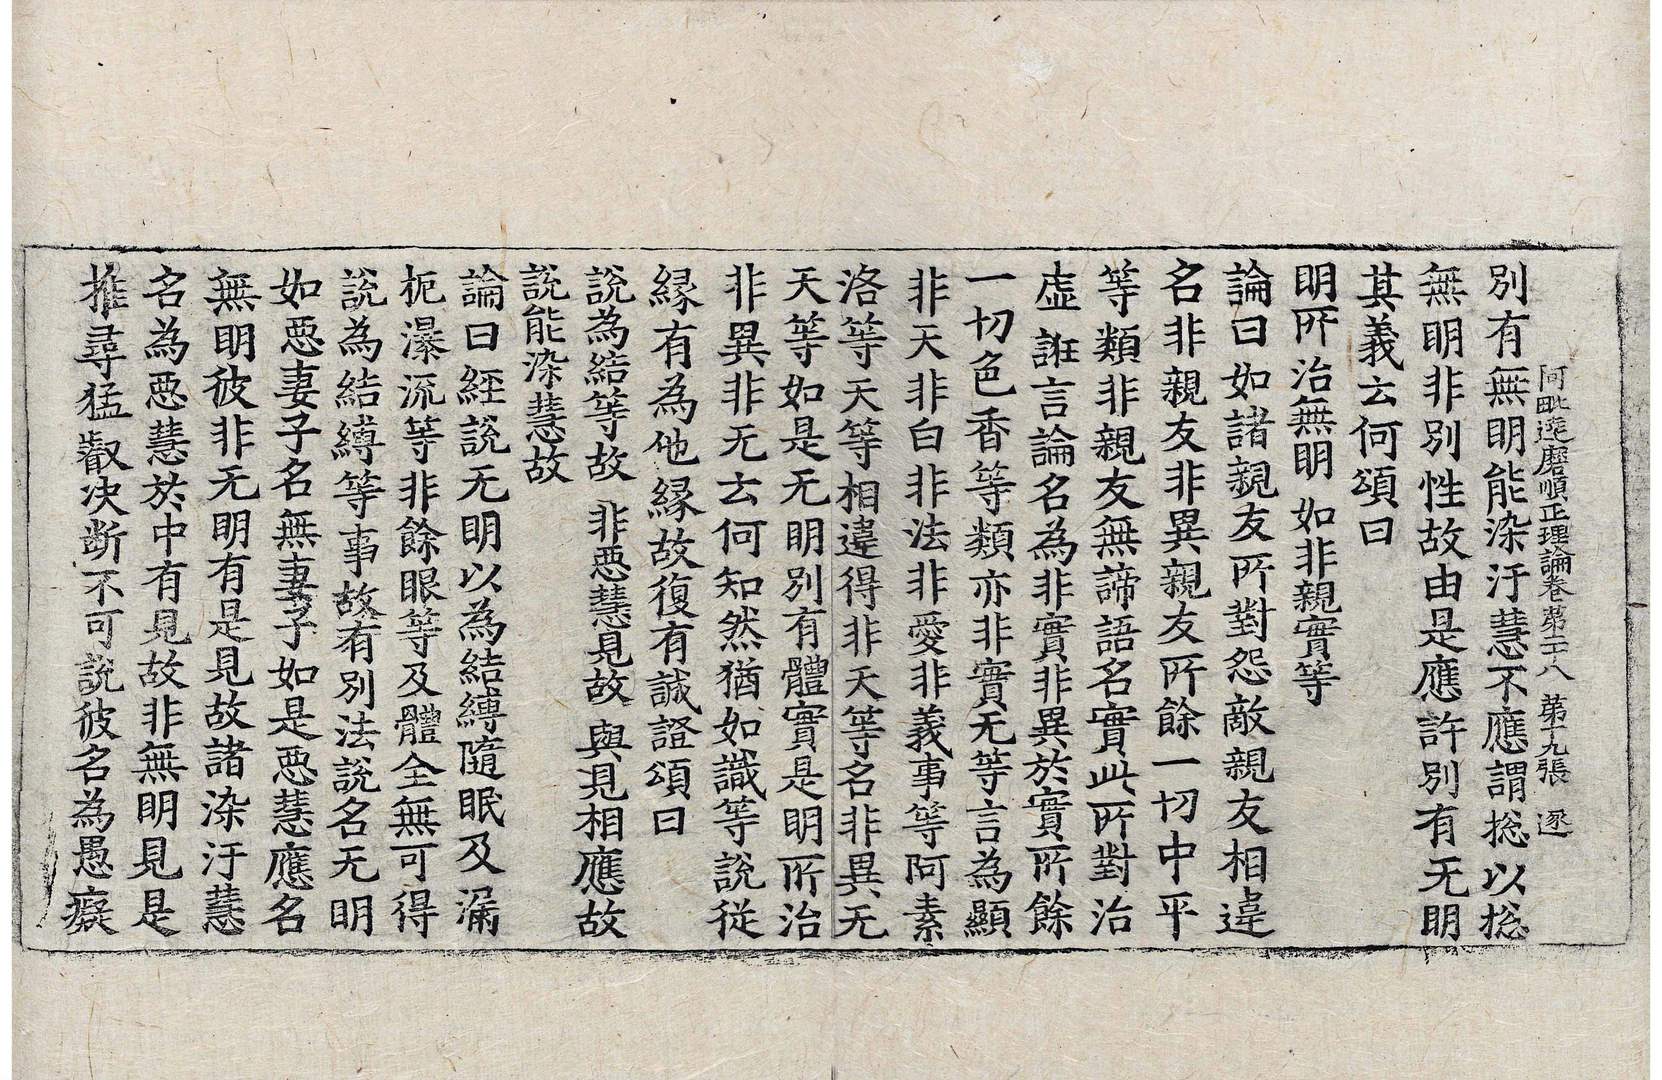 阿毗達磨順正理論卷第二十八 第十九張 逐
別有無明能染汙慧不應謂揔以揔
無明非別性故由是應許別有无明
其義云何頌曰
明所治無明 如非親實等
論曰如諸親友所對怨敵親友相違
名非親友非異親友所餘一切中平
等類非親友無諦語名實此所對治
虛誑言論名為非實非異於實所餘
一切色香等類亦非實无等言為顯
非天非白非法非愛非義事等阿素
洛等天等相違得非天等名非異无
天等如是无明別有體實是明所治
非異非无云何知然猶如識等說從
緣有為他緣故復有誠證頌曰
說為結等故 非惡慧見故 與見相應故
說能染慧故
論曰經說无明以為結縛隨眠及漏
枙瀑流等非餘眼等及體全無可得
說為結縛等事故有別法說名无明
如惡妻子名無妻子如是惡慧應名
無明彼非无明有是見故諸染汙慧
名為惡慧於中有見故非無明見是
推尋猛叡決斷不可說彼名為愚癡